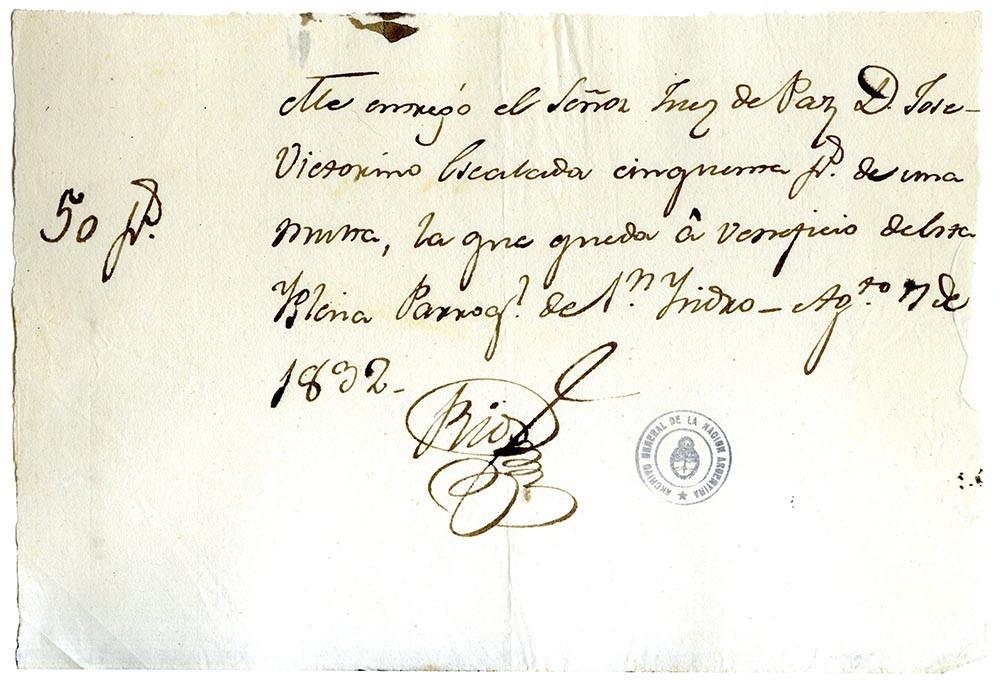 Me entregó el Señor Juez de Paz D. Jose
Victorino Escalada cinquenta p.s de una
50 p.s
multa, la que queda â veneficio de esta
Yglecia Parroq.l de S.n Ysidro – Ag.to 7 de
1832 –
Rios
ARCHIVO GENERAL DE LA NACION ARGENTINA